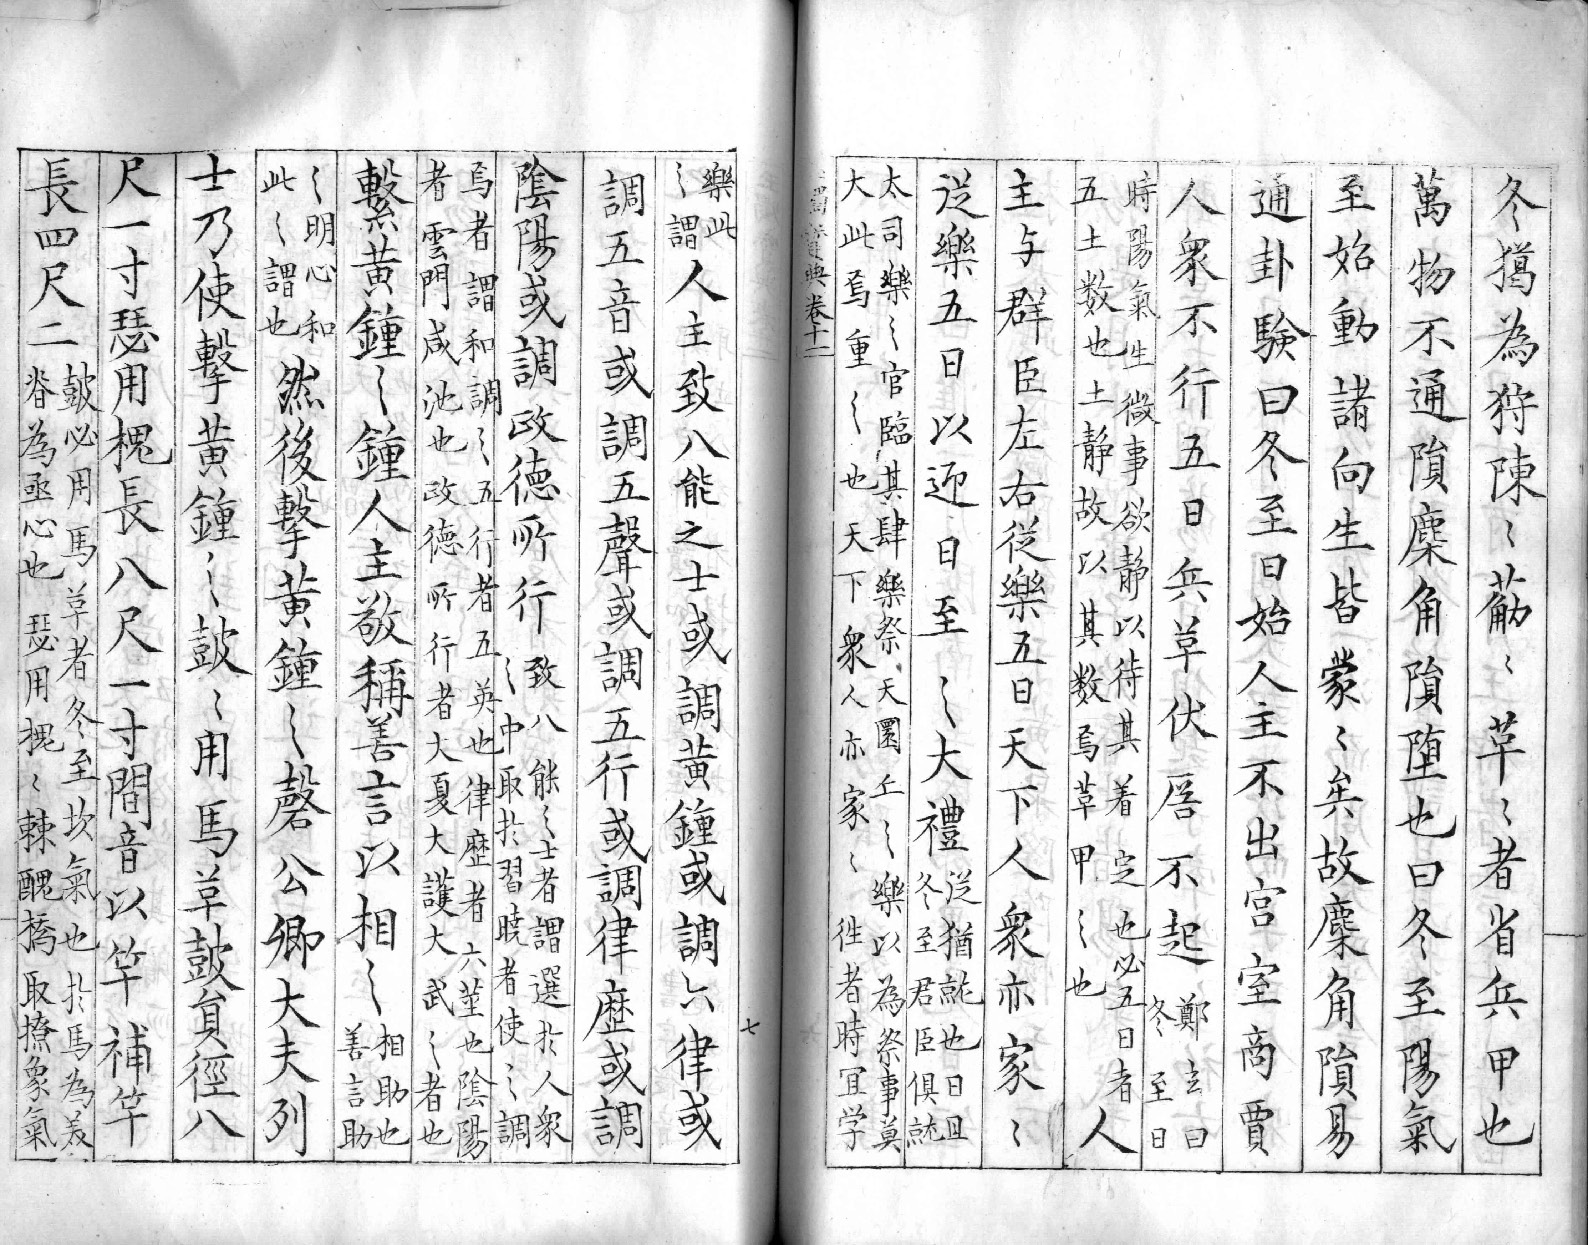 冬獦為狩陳〻葪〻草〻者省兵甲也
萬物不通隕麋角隕墮也曰冬至陽氣
至始動諸向生皆蒙〻矣故麋角隕易
通卦験曰冬至日始人主不出宮室商賈
人衆不行五日兵革伏匿不起鄭玄曰冬至日
時陽氣生微事欲静以待其着定也必五日者
五土数也土静故以其数焉革甲〻也人
主与群臣左右従樂五日天下人衆亦家〻
従樂五日以迎日至〻大禮従猶就也日且
冬至君臣俱就
太司樂〻官臨其肆樂祭天圜丘〻樂以為祭事莫
大此焉重〻也天下衆人亦家〻往者時冝学
卷十二
七
樂此
〻謂人主致八能之士或調黄鍾或調六律或
調五音或調五聲或調五行或調律歴或調
陰陽或調政德所行致八能〻士者謂選扵人衆
〻中取扵習暁者使〻調
焉者謂和調〻五行者五英也律歴者六莖也陰陽
者雲門咸池也政德所行者大夏大護大武〻者也
繫黄鍾〻鍾人主敬稱善言以相〻相助也
善言助
〻明心和
此〻謂也然後擊黄鍾〻磬公卿大夫列
士乃使擊黄鍾〻皷〻用馬草皷負徑八
尺一寸瑟用槐長八尺一寸間音以竽補竽
長四尺二皷必用馬草者冬至坎氣也扵馬為美
脊為亟心也瑟用槐〻棘醜橋取撩象氣